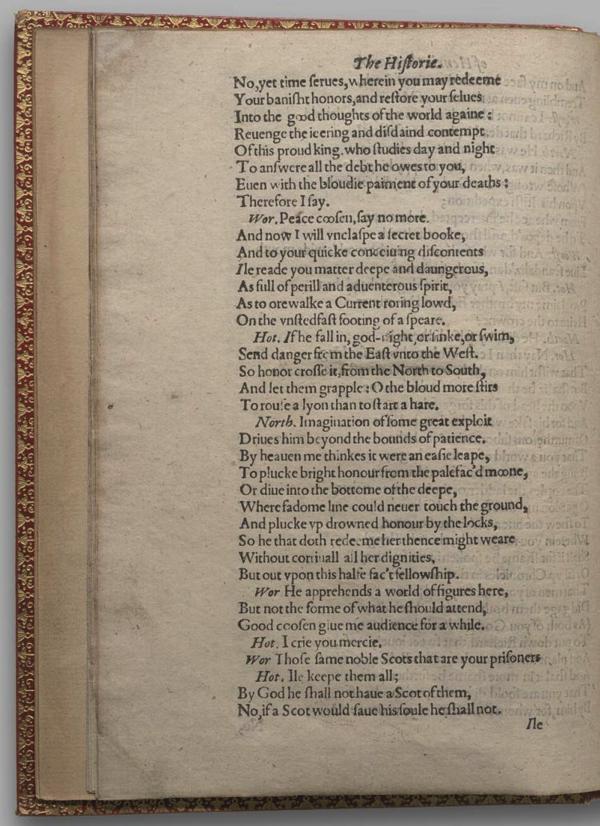 The Hiſtorie.
No, yet time ſerues, wherein you may redeeme
Your baniſht honors, and reſtore your ſelues
Into the good thoughts of the world againe:
Reuenge the ieering and diſdaind contempt
Of this proud king, who ſtudies day and night
To anſwere all the debt he owes to you,
Euen with the bloudie paiment of your deaths:
Therefore I ſay.
Wor. Peace cooſen, ſay no more.
And now I will vnclaſpe a ſecret booke,
And to your quicke conceiuing diſcontents
Ile reade you matter deepe and daungerous,
As full of perill and aduenterous ſpirit,
As to ore walke a Current roring lowd,
On the vnſtedfaſt footing of a ſpeare.
Hot. If he fall in, god-night, or ſinke, or ſwim,
Send danger from the Eaſt vnto the Weſt.
So honor croſſe it, from the North to South,
And let them grapple: O the bloud more ſtirs
To rouſe a lyon than to ſtart a hare.
North. Imagination of ſome great exploit
Driues him beyond the bounds of patience.
By heauen me thinkes it were an eaſie leape,
To plucke bright honour from the palefac'd moone,
Or diue into the bottome of the deepe,
Where fadome line could neuer touch the ground,
And plucke vp drowned honour by the locks,
So he that doth redeeme her thence might weare
Without corriuall all her dignities,
But out vpon this halfe fac't fellowſhip.
Wor He apprehends a world of figures here,
But not the forme of what he ſhould attend,
Good cooſen giue me audience for a while.
Hot. I crie you mercie.
Wor Thoſe ſame noble Scots that are your priſoners
Hot. Ile keepe them all;
By God he ſhall not haue a Scot of them,
No, if a Scot would ſaue his ſoule he ſhall not.
Ile